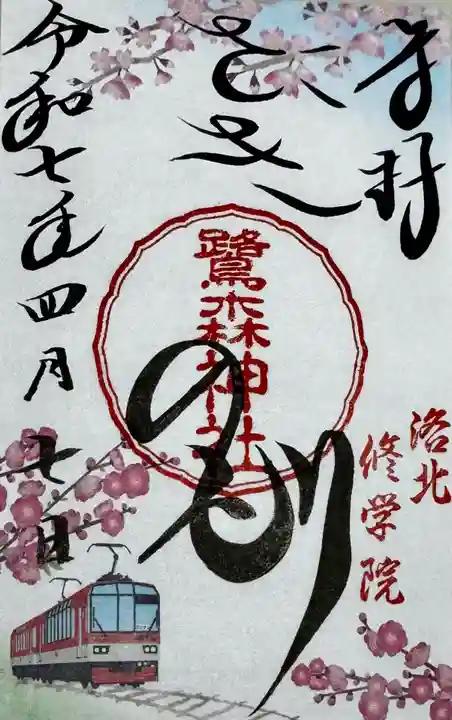 奉拝
洛北
修学院
さぎのもり
鷺森神社
令和七年四月七日